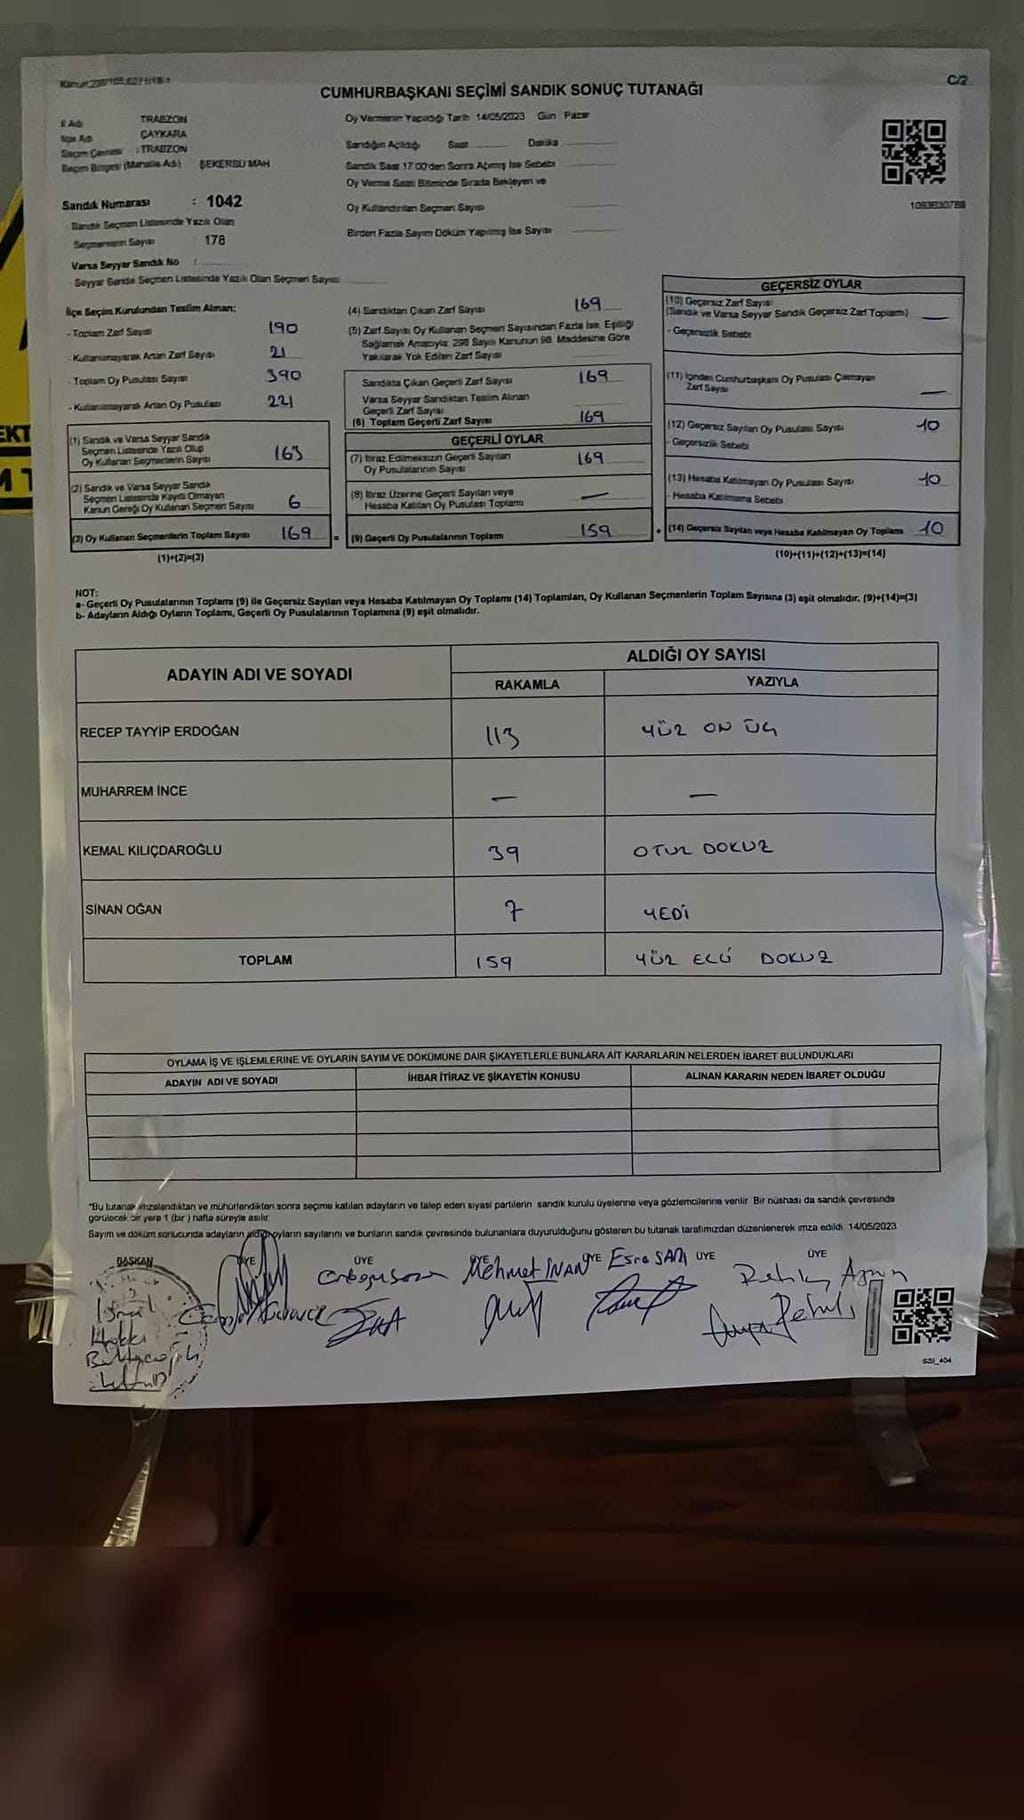 C/2
CUMHURBAŞKANI SEÇİMİ SANDIK SONUÇ TUTANAĞI
İl Adı TRABZON
İlçe Adı ÇAYKARA
Seçim Çevresi : TRABZON
Seçim Bölgesi (Mahalle Adı) ŞEKERSU MAH
Sandık Numarası : 1042
Sandık Seçmen Listesinde Yazılı Olan
Seçmenlerin Sayısı 178
Varsa Seyyar Sandık No :
Seyyar Sandık Seçmen Listesinde Yazılı Olan Seçmen Sayısı
Oy Vermenin Yapıldığı Tarih 14/05/2023 Gün Pazar
Sandığın Açıldığı Saat Dakika
Sandık Saat 17:00'den Sonra Açılmış İse Sebebi
Oy Verme Saati Bitiminde Sırada Bekleyen ve
Oy Kullandırılan Seçmen Sayısı
Birden Fazla Sayım Döküm Yapılmış İse Sayısı
1093630788
İlçe Seçim Kurulundan Teslim Alınan;
- Toplam Zarf Sayısı 190
- Kullanılmayarak Artan Zarf Sayısı 21
- Toplam Oy Pusulası Sayısı 390
- Kullanılmayarak Artan Oy Pusulası 221
(1) Sandık ve Varsa Seyyar Sandık
Seçmen Listesinde Yazılı Olup
Oy Kullanan Seçmenlerin Sayısı 163
(2) Sandık ve Varsa Seyyar Sandık
Seçmen Listesinde Kayıtlı Olmayan
Kanun Gereği Oy Kullanan Seçmen Sayısı 6
(3) Oy Kullanan Seçmenlerin Toplam Sayısı 169 =
(1)+(2)=(3)
(4) Sandıktan Çıkan Zarf Sayısı 169
(5) Zarf Sayısı Oy Kullanan Seçmen Sayısından Fazla İse, Eşitliği
Sağlamak Amacıyla; 298 Sayılı Kanunun 98. Maddesine Göre
Yakılarak Yok Edilen Zarf Sayısı
Sandıkta Çıkan Geçerli Zarf Sayısı 169
Varsa Seyyar Sandıktan Teslim Alınan
Geçerli Zarf Sayısı
(6) Toplam Geçerli Zarf Sayısı 169
GEÇERLİ OYLAR
(7) İtiraz Edilmeksizin Geçerli Sayılan
Oy Pusulalarının Sayısı 169
(8) İtiraz Üzerine Geçerli Sayılan veya
Hesaba Katılan Oy Pusulası Toplamı —
(9) Geçerli Oy Pusulalarının Toplamı 159 +
GEÇERSİZ OYLAR
(10) Geçersiz Zarf Sayısı
(Sandık ve Varsa Seyyar Sandık Geçersiz Zarf Toplamı) —
- Geçersizlik Sebebi
(11) İçinden Cumhurbaşkanı Oy Pusulası Çıkmayan
Zarf Sayısı —
(12) Geçersiz Sayılan Oy Pusulası Sayısı 10
- Geçersizlik Sebebi
(13) Hesaba Katılmayan Oy Pusulası Sayısı 10
- Hesaba Katılmama Sebebi
(14) Geçersiz Sayılan veya Hesaba Katılmayan Oy Toplamı 10
(10)+(11)+(12)+(13)=(14)
NOT:
a- Geçerli Oy Pusulalarının Toplamı (9) ile Geçersiz Sayılan veya Hesaba Katılmayan Oy Toplamı (14) Toplamları, Oy Kullanan Seçmenlerin Toplam Sayısına (3) eşit olmalıdır. (9)+(14)=(3)
b- Adayların Aldığı Oyların Toplamı, Geçerli Oy Pusulalarının Toplamına (9) eşit olmalıdır.
ADAYIN ADI VE SOYADI ALDIĞI OY SAYISI
RAKAMLA YAZIYLA
RECEP TAYYİP ERDOĞAN 113 YÜZ ON ÜÇ
MUHARREM İNCE — —
KEMAL KILIÇDAROĞLU 39 OTUZ DOKUZ
SİNAN OĞAN 7 YEDİ
TOPLAM 159 YÜZ ELLİ DOKUZ
OYLAMA İŞ VE İŞLEMLERİNE VE OYLARIN SAYIM VE DÖKÜMÜNE DAİR ŞİKAYETLERLE BUNLARA AİT KARARLARIN NELERDEN İBARET BULUNDUKLARI
ADAYIN ADI VE SOYADI İHBAR İTİRAZ VE ŞİKAYETİN KONUSU ALINAN KARARIN NEDEN İBARET OLDUĞU
*Bu tutanak imzalandıktan ve mühürlendikten sonra seçime katılan adayların ve talep eden siyasi partilerin sandık kurulu üyelerine veya gözlemcilerine verilir. Bir nüshası da sandık çevresinde
görülecek bir yere 1 (bir) hafta süreyle asılır.
Sayım ve döküm sonucunda adayların aldığı oyların sayılarını ve bunların sandık çevresinde bulunanlara duyurulduğunu gösteren bu tutanak tarafımızdan düzenlenerek imza edildi. 14/05/2023
BAŞKAN ÜYE ÜYE ÜYE ÜYE ÜYE ÜYE
İsmail
Hakkı
Mehmet İNAN
Esra SARI
SSI_404